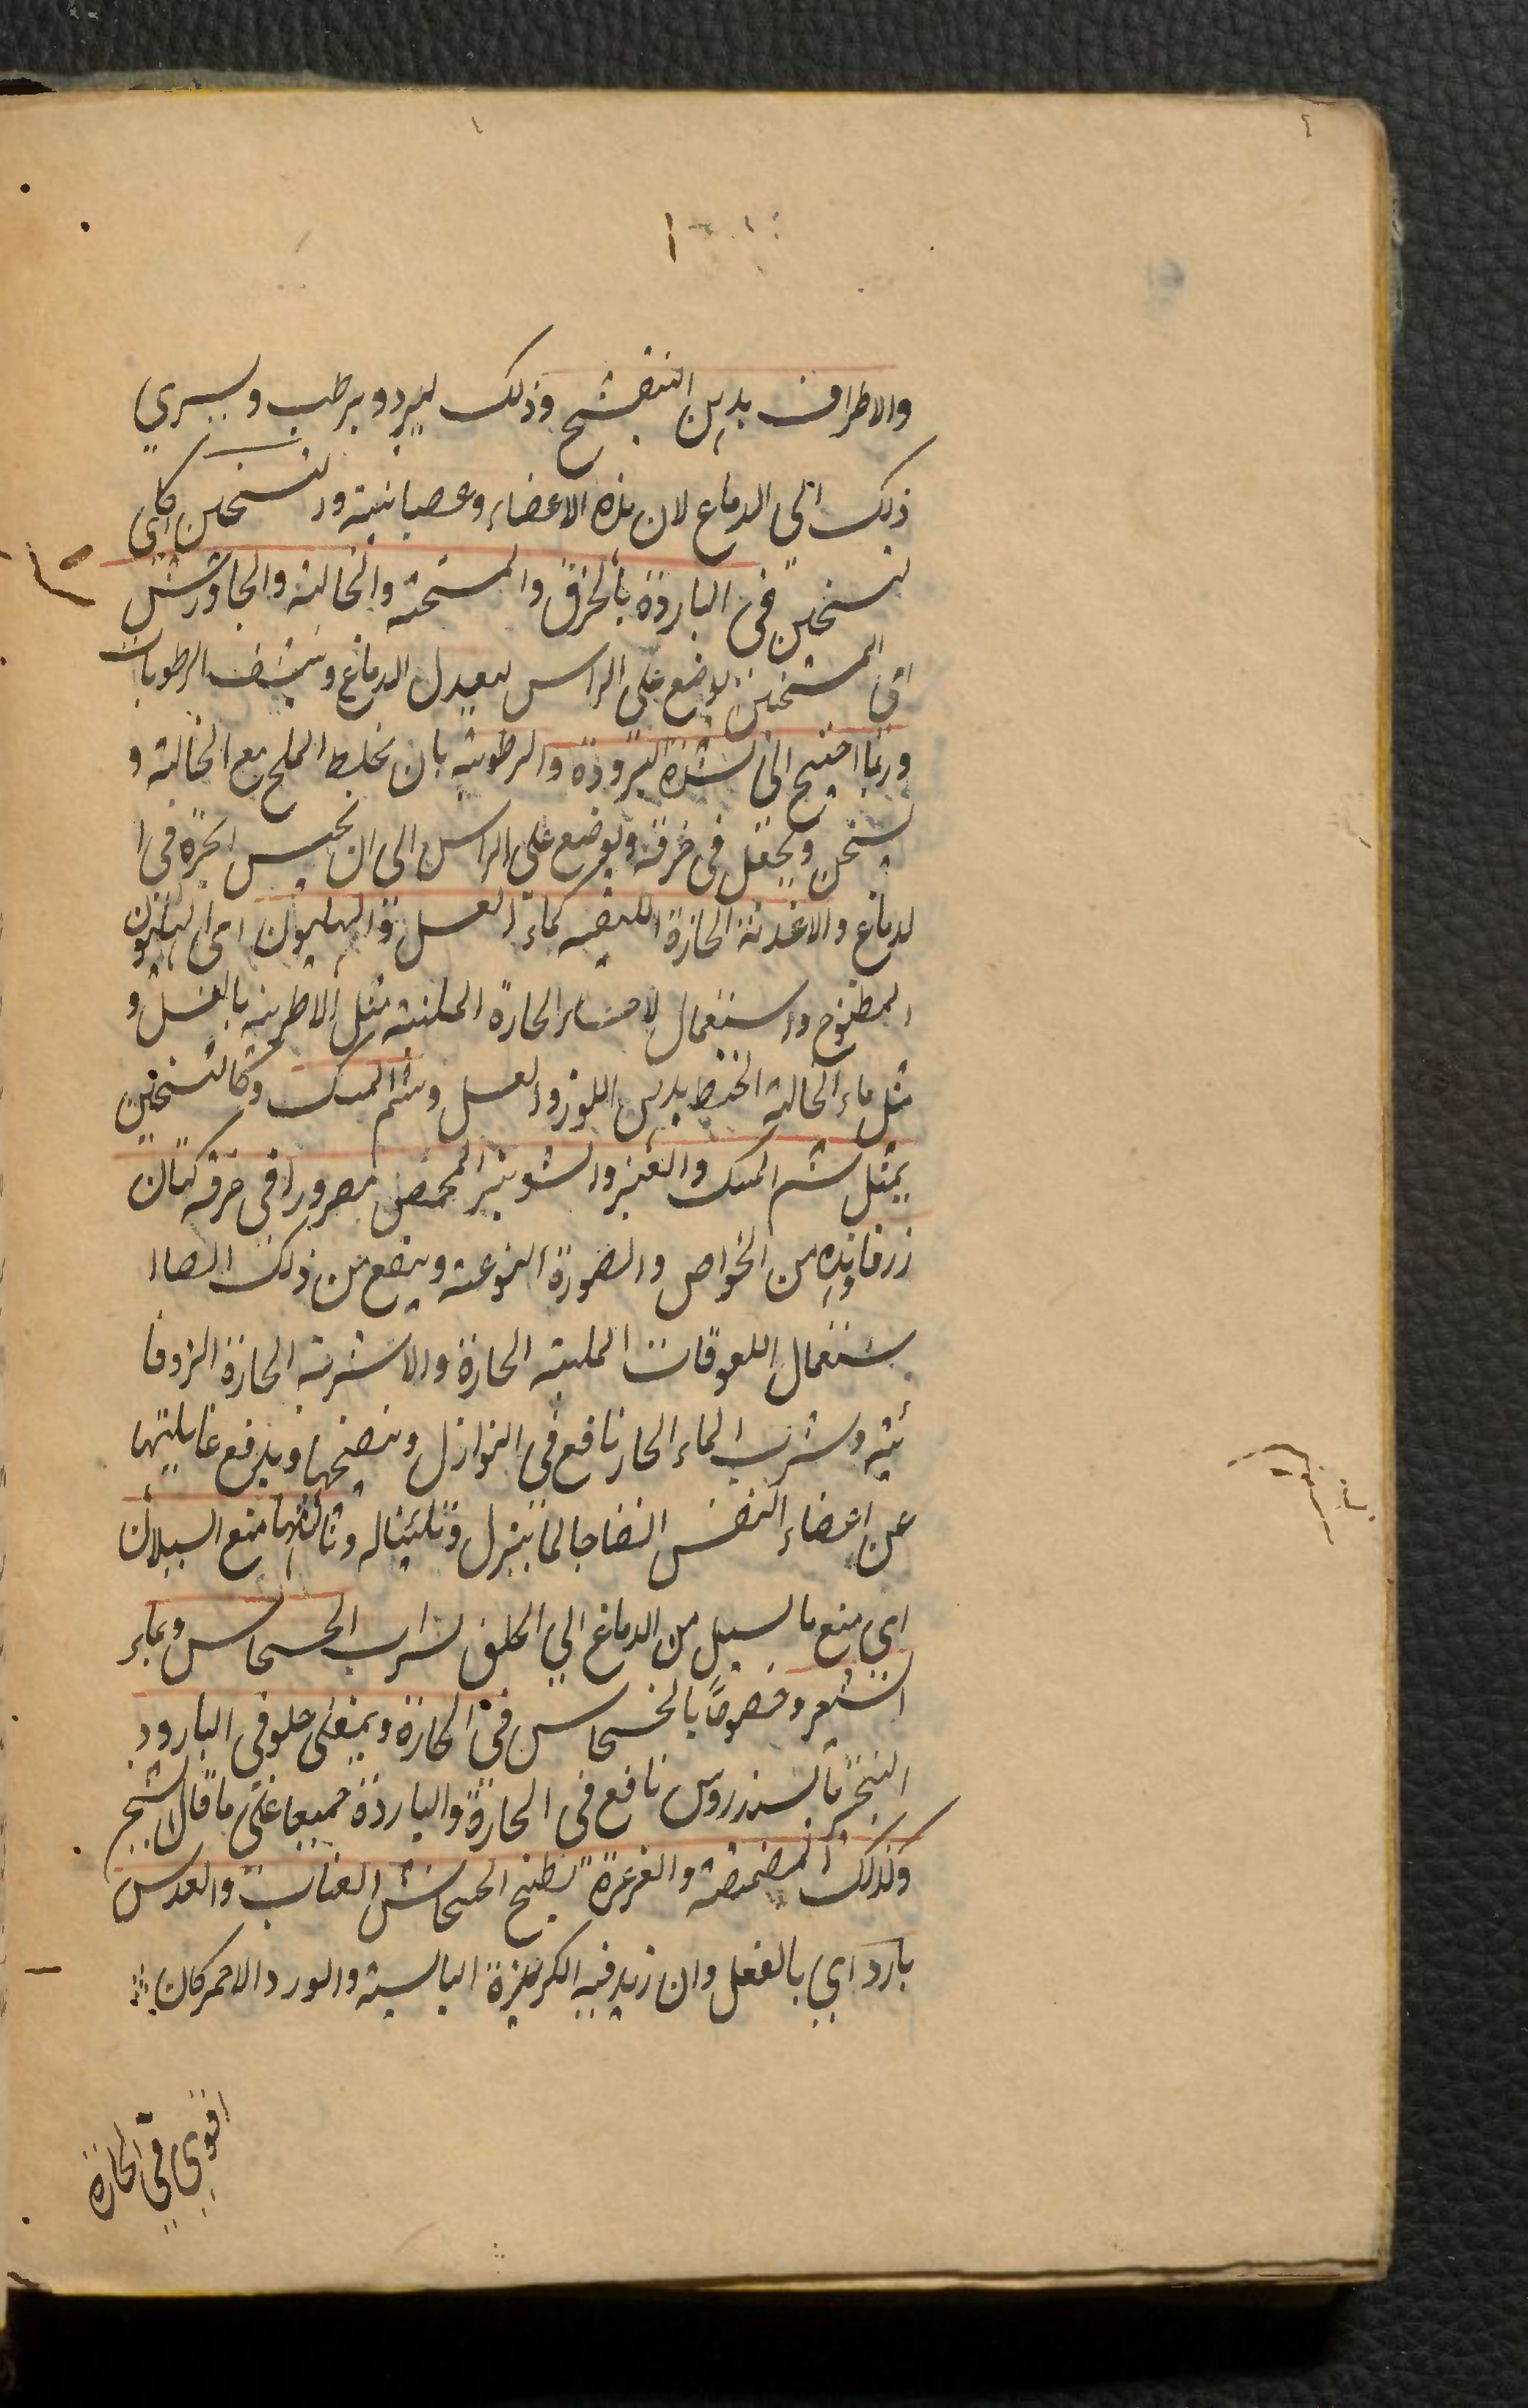 والاطراف بدهن البنفسج وذلك ليبرد ويرطب ويسري
ذلك الى الدماغ لان هذه الاعضاء وعصبانية والتسخين اي
لتسخين في الباردة بالخرق والمسخنة والنخالة والجاورش
اي المسخنين يوضع على الراس ليعدل الدماغ وينشف الرطوبات
وربما احتيج الى لشدة البرودة والرطوبة بان يخلط الملح مع النخالة و
يسخن ويجعل في خرقة ويوضع على الراس الى ان يحس الحرة في ا
لدماغ والاغذية الحارة اللطيفه كماء العسل والهليون اي الهليون
المطبوخ واستعمال لاحساء الحارة الملينة مثل الاطرية بالعسل و
مثل ماء النخالة الحنطه بدهن اللوز والعسل وشم المسك وكالتسخين
بمثل شم المسك والعنبر والشونيز المحمص مصرورا في خرقة كتان
زرقا وهذه من الخواص والصورة النوعية وينفع من ذلك ايضا ا
ستعمال اللعوقات الملينة الحارة والاشربة الحارة الزوفا
ئية وشرب الماء الحار نافع في النوازل وينضجها ويدفع غايلتها
عن اعضاء النفس انضاجا لما ينزل وتليينا له وثالثها منع السيلان
اي منع ما يسيل من الدماغ الي الحلق بشراب الخشخاش وبماء
الشعير وخصوصًا بالخشخاش في الحارة وبمغلى حلو في البارد و
التبخر بالسندروس نافع في الحارة والباردة جميعا على ما قال الشيخ
وكذلك المضمضة والغرغرة بطبخ الخشخاش العناب والعدس
بارد اي بالفعل وان زيد فيه الكزبرة اليابسة والورد الاحمر كان
اقوي في الحارة